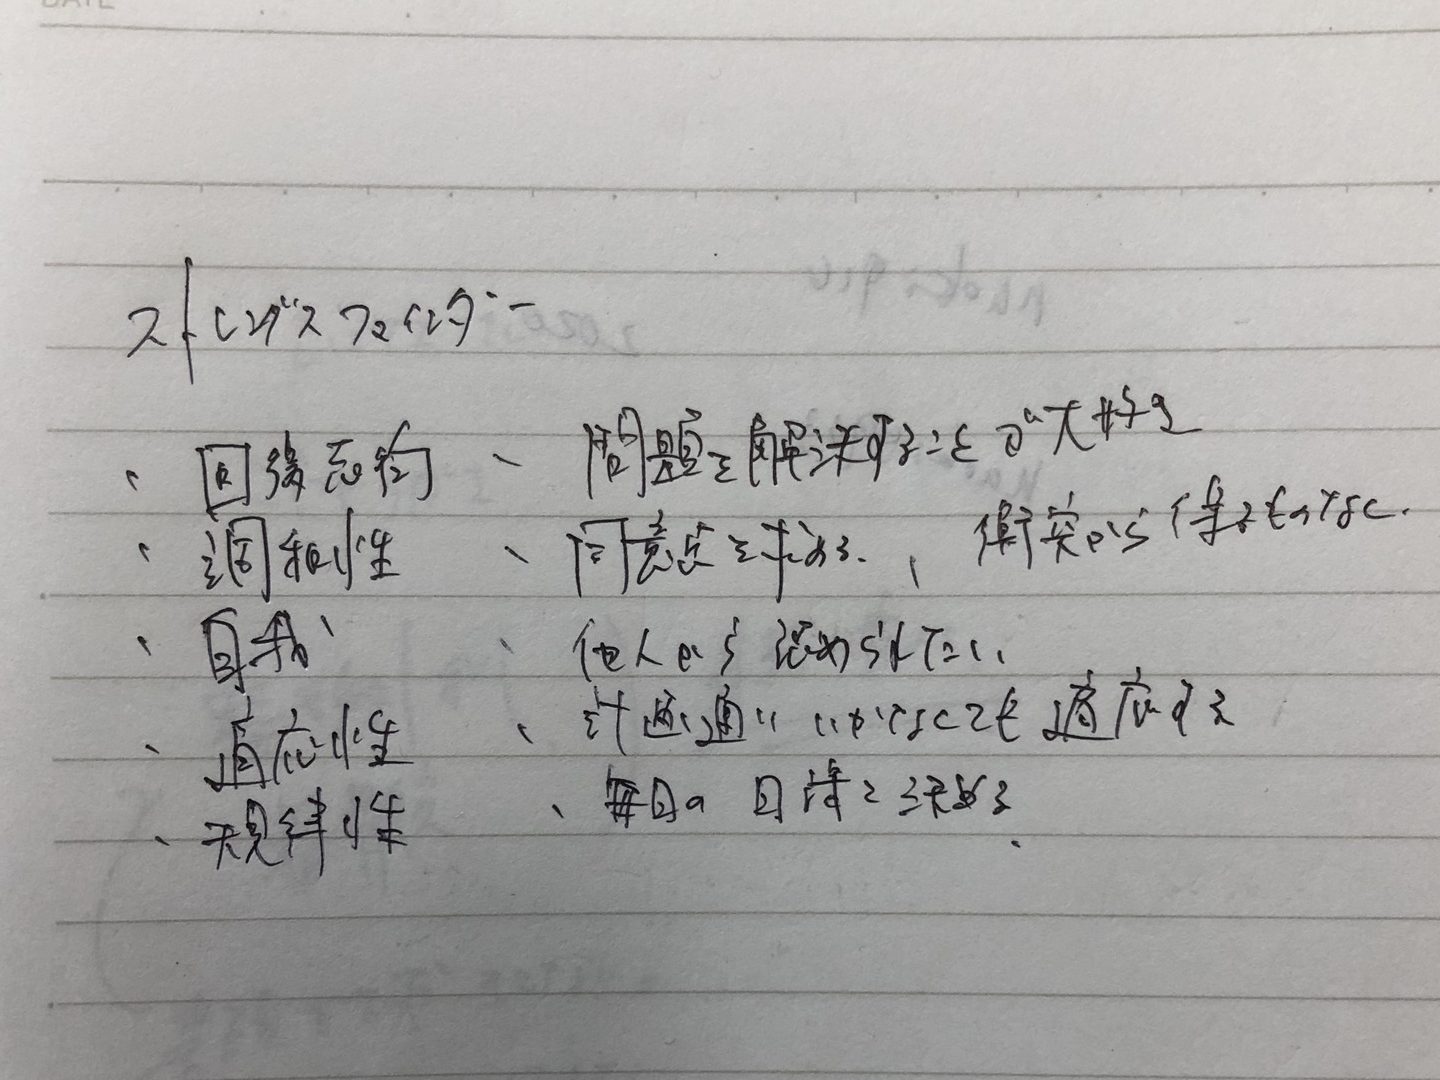 DATE
ストレングスファインダー
・回復志向 、問題を解決することが大好き
・調和性 、同意点を求める. 、衝突から得るものはなし.
・自我 、他人から認められたい.
・適応性 、計画通りいかなくても適応する
・規律性 、毎日の目標を決める.